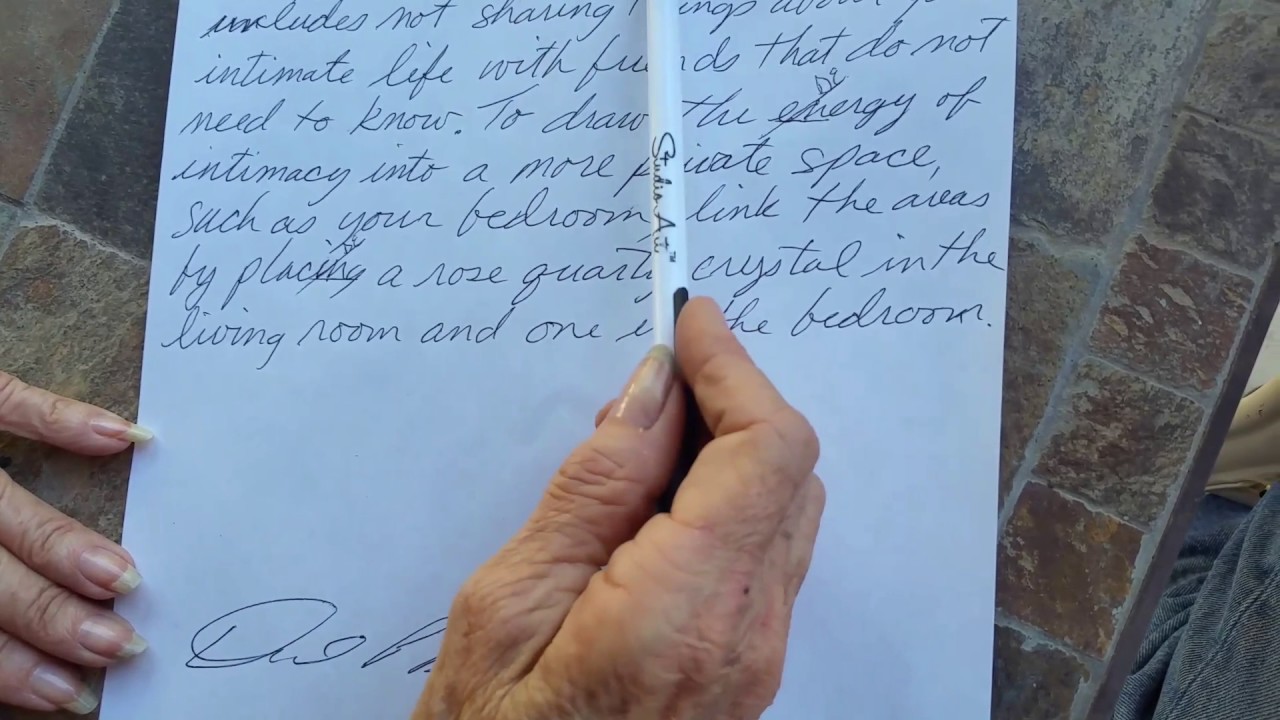 includes not sharing ings about
intimate life with fri nds that do not
need to know. To draw the energy of
intimacy into a more p ivate space,
such as your bedroom link the areas
by placing a rose quartz crystal in the
living room and one i the bedroom.
Studio Art™